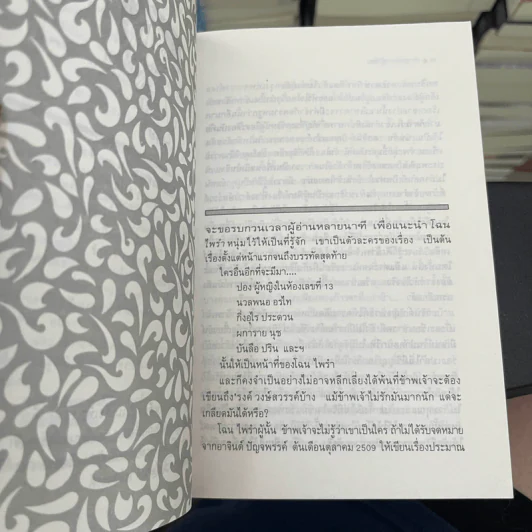 จะขอรบกวนเวลาผู้อ่านหลายนาที เพื่อแนะนำ โฉน
ไพรำ หนุ่มไว้ให้เป็นที่รู้จัก เขาเป็นตัวละครของเรื่อง เป็นต้น
เรื่องตั้งแต่หน้าแรกจนถึงบรรทัดสุดท้าย
ใครอื่นอีกที่จะมีมา....
ปอง ผู้หญิงในห้องเลขที่ 13
นวลพนอ อรไท
กิ่งอุไร ประดวน
ผการาย นุช
บันลือ ปริน และฯ
นั้นให้เป็นหน้าที่ของโฉน ไพรำ
และก็คงจำเป็นอย่างไม่อาจหลีกเลี่ยงได้พ้นที่ข้าพเจ้าจะต้อง
เขียนถึง'รงค์ วงษ์สวรรค์บ้าง แม้ข้าพเจ้าไม่รักมันมากนัก แต่จะ
เกลียดมันได้หรือ?
โฉน ไพรำผู้นั้น ข้าพเจ้าจะไม่รู้ว่าเขาเป็นใคร ถ้าไม่ได้รับจดหมาย
จากอาจินต์ ปัญจพรรค์ ต้นเดือนตุลาคม 2509 ให้เขียนเรื่องประมาณ